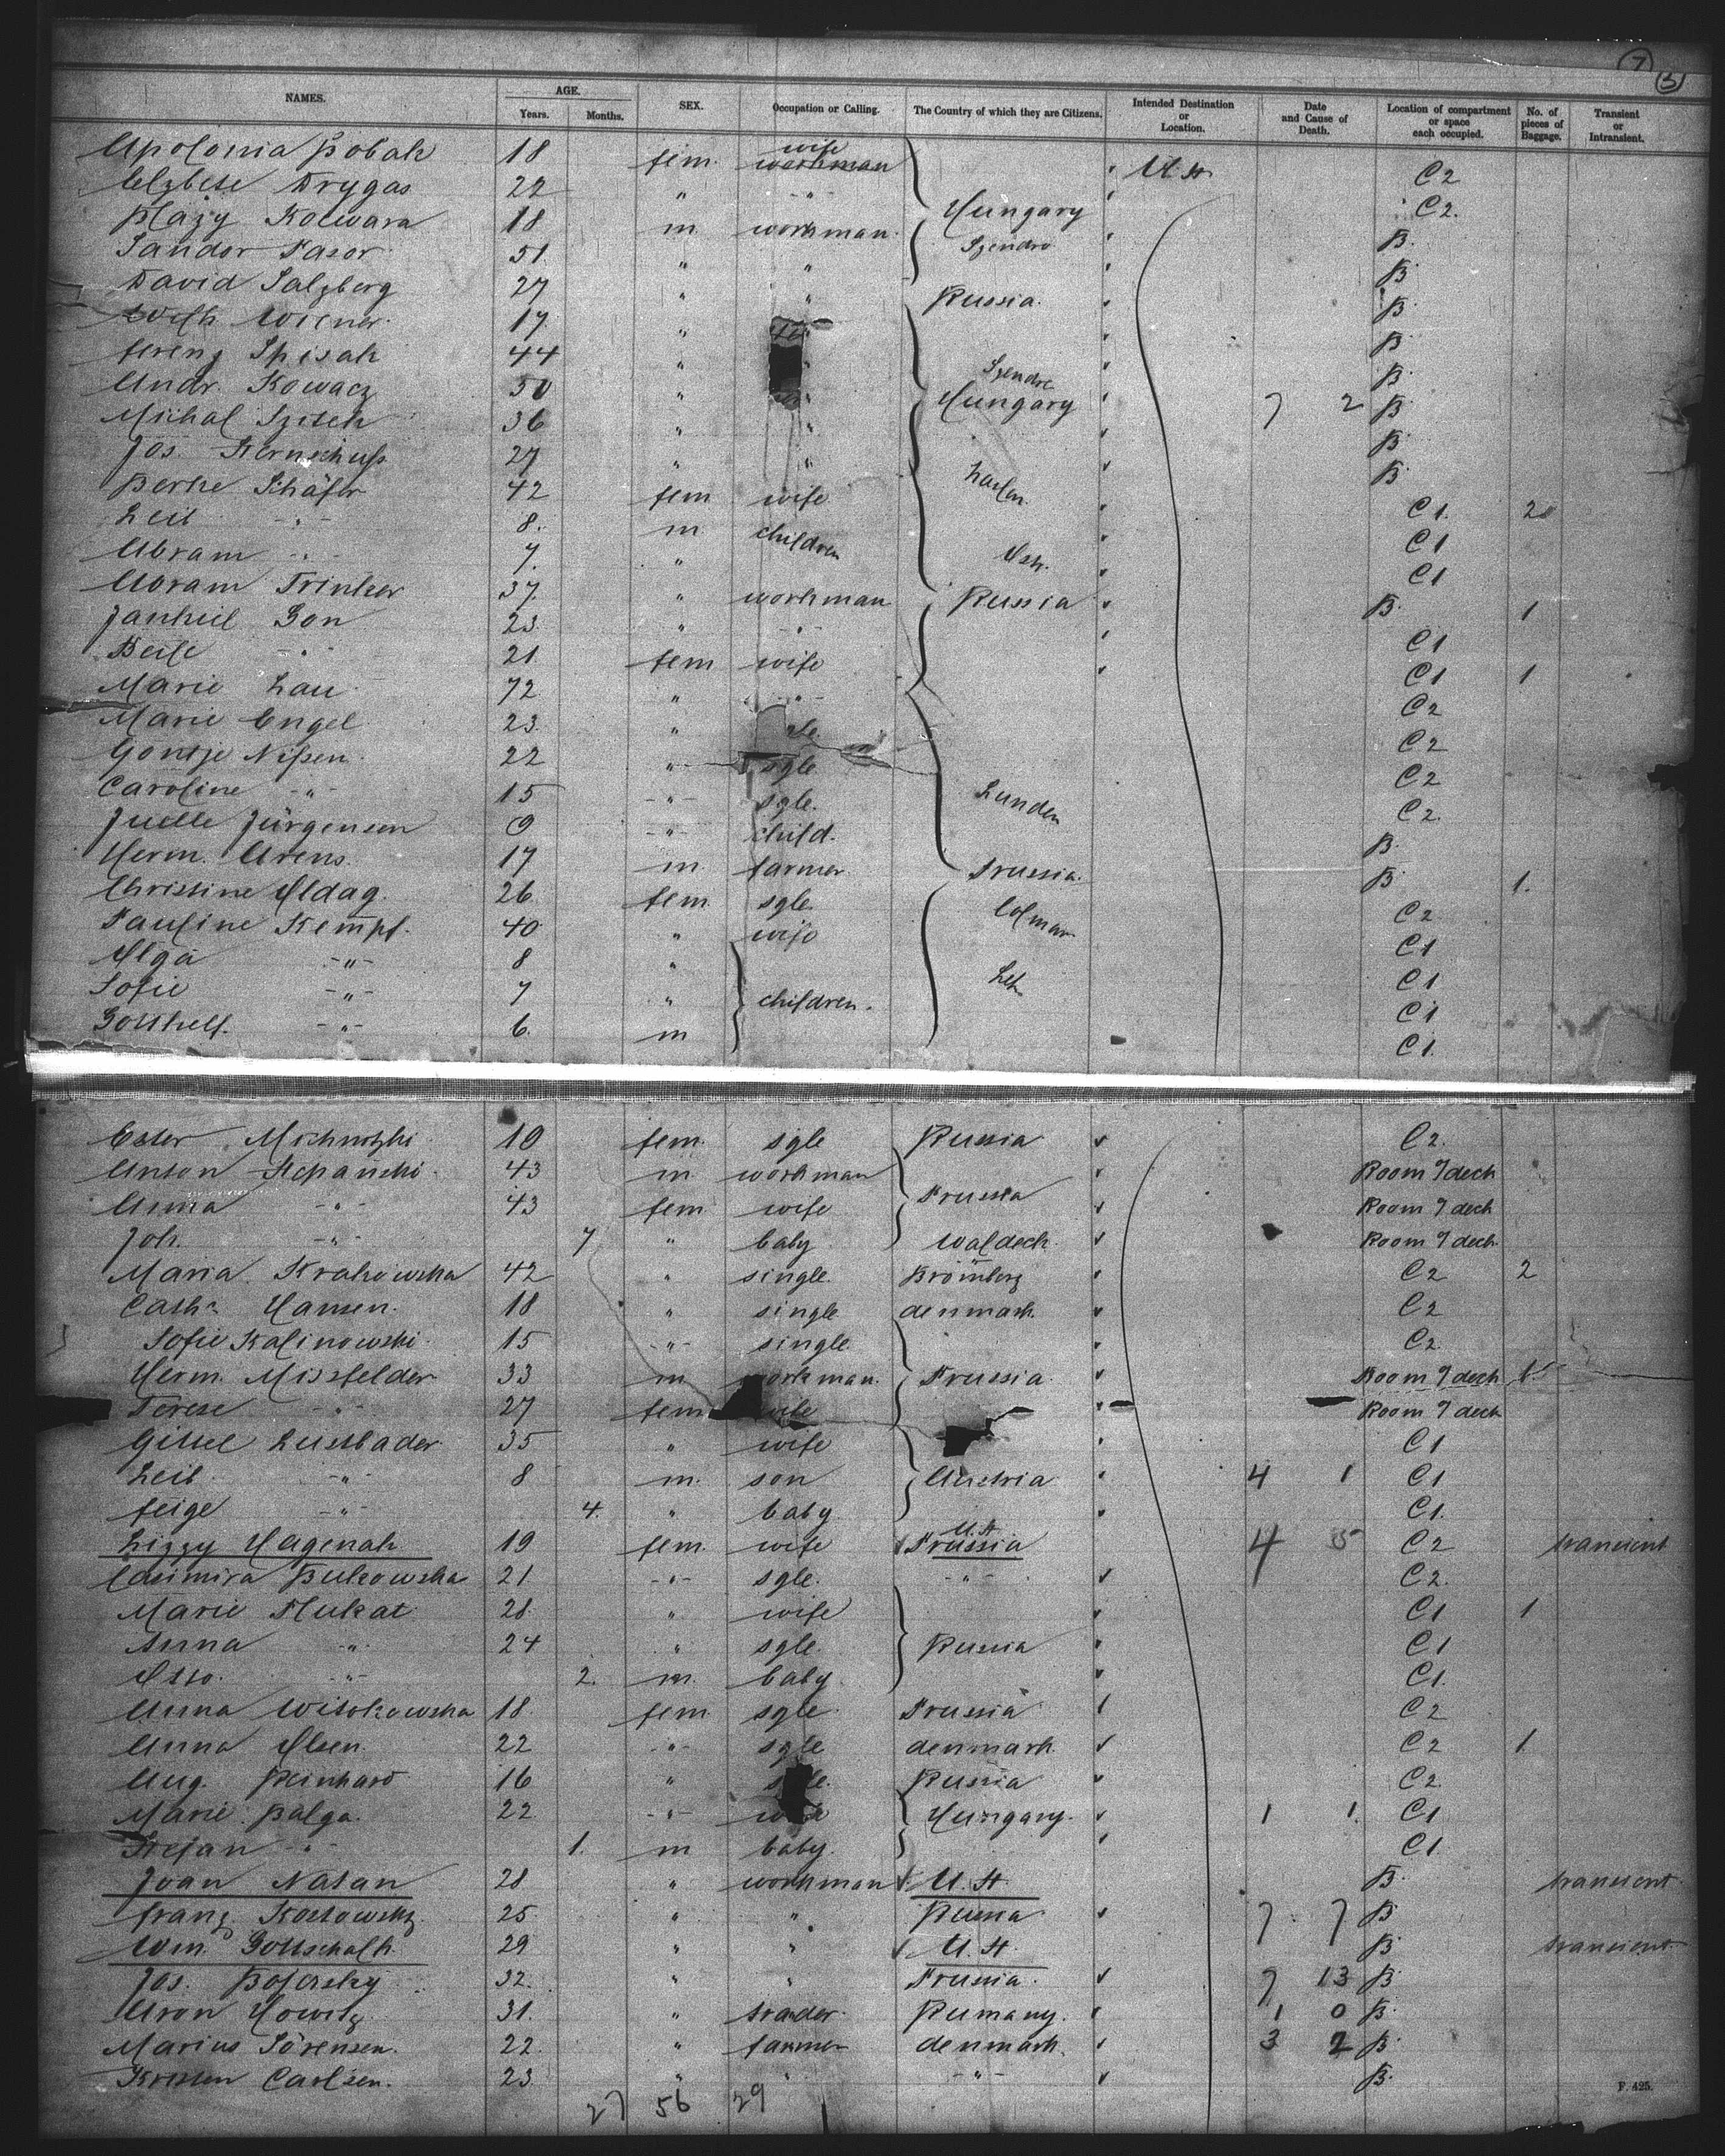 7
3
NAMES. AGE. Years. Months. SEX. Occupation or Calling. The Country of which they are Citizens. Intended Destination or Location. Date and Cause of Death. Location of compartment or space each occupied. No. of pieces of Baggage. Transient or Intransient.
Apolonia Bobak 18 fem. wife workman U. St. C2
Elzbete Drygas 22 " -"- C2.
Blazy Kocwara 18 m. workman Hungary B.
Sandor Pasor 51 " " Szendro B.
David Salzberg 27 " " Russia. B.
Wiener 17 " B.
Ferenz Spisak 44 " " B.
Andr. Kowacz 50 " Szendro Hungary 7 2 B.
Michal Sziteh 36 " " B.
Jos. Kernschuss 27 " " B.
Berke Schäfer 42 fem wife C1. 2
Leib -"- 8. m. children C1
Abram -"- 7. " C1
Abram Trinker 37. " workman Russia B. 1
Jankiel Gon 23. " -"- C1
Beile -"- 21 fem wife C1 1
Marie Lau 72 " -"- C2
Marie Engel 23. " C2
Gontje Nissen. 22 -"- sgle C2
Caroline -"- 15 -"- sgle. Lunden C2.
Juelle Jürgensen 9 -"- child. B.
Herm. Arens. 17 m. farmer Prussia. B. 1.
Christine Oldag. 26. fem. sgle. Colmar C2
Pauline Kempf. 40. " wife C1
Olga -"- 8 " C1
Sofie -"- 7 " children. C1
Gotthelf. -"- 6. m C1.
Ester 10 fem. sgle Russia C2.
Anton Stepanski 43 m. workman Room 7 deck
Anna -"- 43 fem wife Prussia Room 7 deck
Joh. -"- 7 " baby Waldeck. Room 7 deck.
Maria. Krakowska 42 " single. Bromberg C2 2
Cath. Hansen. 18 " single denmark. C2
Sofie Kalinowski. 15 -"- single C2.
Herm. Missfelder 33 m workman. Prussia. Room 7 deck 1
Terese -"- 27 fem wife Room 7 deck
Gittel Lustbader 35 " wife C1
Leib -"- 8 m. son Austria 4 1 C1
Feige -"- 4. " baby C1.
Lizzy Hagenah 19 fem. wife U. St. Prussia 4 5 C2 transient
Casimira Bukowska 21 -"- sgle. -"- C2.
Marie Plukat 28. " wife C1 1
Anna -"- 24 " sgle. Russia C1
Otto. -"- 2. m. baby C1.
Anna Wisokowska 18. fem. sgle. Prussia C2
Anna Olsen. 22 -"- sgle denmark. C2 1
Aug. Reinhard 16 " Russia C2.
Marie Balga. 22 -"- Hungary. 1 1. C1
Stefan -"- 1. m baby. C1.
Joan Natan 28 " workman U. St. B. transient.
Franz 25. " " Russia 7 7 B.
Wm. Gottschalk. 29 " " U. St. B transient.
Jos. 32. " " Prussia. 7 13 B.
Aron Howitz 31. " trader. Rumany. 1 0 B.
Marius Sörensen. 22. " farmer denmark. 3 2 B.
Kristen Carlsen. 23. " " -"- B.
27 56 29
F. 425.